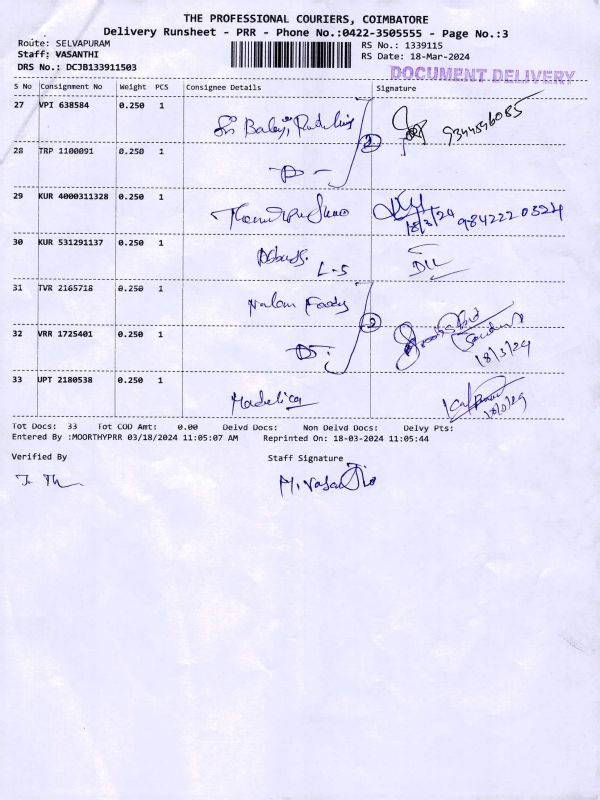 THE PROFESSIONAL COURIERS, COIMBATORE
Delivery Runsheet - PRR - Phone No.:0422-3505555 - Page No.:3
Route: SELVAPURAM
RS No.: 1339115
Staff: VASANTHI
RS Date: 18-Mar-2024
DRS No.: DCJB133911503
DOCUMENT DELIVERY
S No Consignment No Weight PCS Consignee Details Signature
27 VPI 638584 0.250 1 Sri Balaji 2 9344546085
28 TRP 1100091 0.250 1
29 KUR 4000311328 0.250 1 18/3/24 9842220324
30 KUR 531291137 0.250 1 L-5
31 TVR 2165718 0.250 1 2
32 VRR 1725401 0.250 1 18/3/24
33 UPT 2180538 0.250 1
Tot Docs: 33 Tot COD Amt: 0.00 Delvd Docs: Non Delvd Docs: Delvy Pts:
Entered By :MOORTHYPRR 03/18/2024 11:05:07 AM Reprinted On: 18-03-2024 11:05:44
Verified By Staff Signature